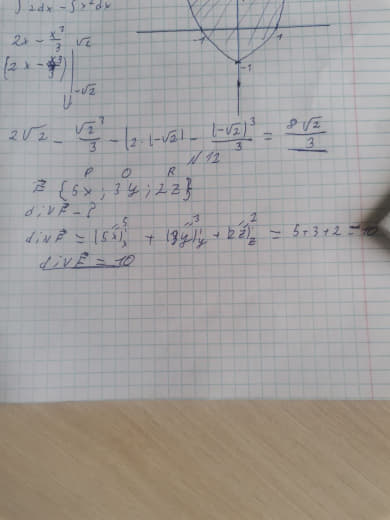 ∫ 2dx - ∫ x²dx
2x - x³/3 |√2
(2x - x³/3) | -√2
-1 1
-1
2√2 - √2³/3 - (2·(-√2) - (-√2)³/3 = 8√2/3
N12
P Q R
F {5x; 3y; 2z}
div F - ?
5 3 2
div F = (5x)'x + (3y)'y + (2z)'z = 5+3+2 = 10
div F = 10